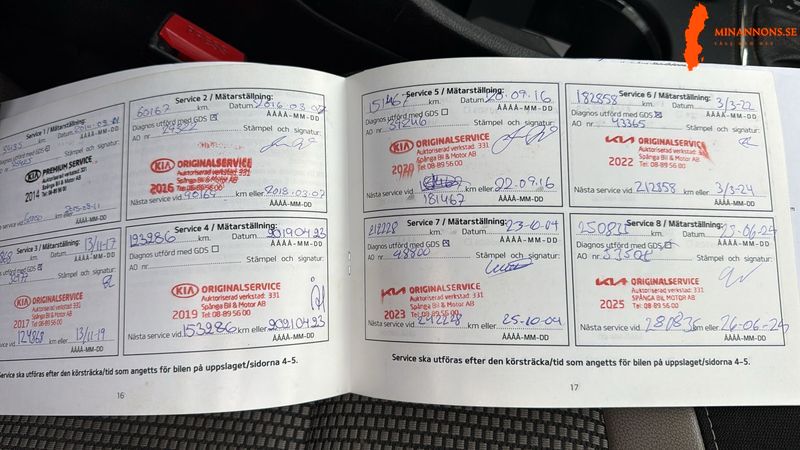 MINANNONS.SE
PRESS
Service 1 / Mätarställning:
Datum
ÅÅÅÅ-MM-DD
Diagnos utförd med GDS
Stämpel och signatur:
KIA PREMIUM SERVICE
Auktoriserad verkstad: 331
2014 Spånga Bil & Motor AB
Tel: 08-89 56 00
ÅÅÅÅ-MM-DD
Service 2 / Mätarställning:
60167 km. Datum 2016-03-07
ÅÅÅÅ-MM-DD
Diagnos utförd med GDS
AO nr
Stämpel och signatur:
KIA ORIGINALSERVICE
Auktoriserad verkstad: 331
2016 Spånga Bil & Motor AB
Tel: 08-89 56 00
Nästa service vid 90167 km eller 2018-03-07
ÅÅÅÅ-MM-DD
Service 3 / Mätarställning:
Datum 13/11-17
ÅÅÅÅ-MM-DD
utförd med GDS
Stämpel och signatur:
KIA ORIGINALSERVICE
Auktoriserad verkstad: 331
Spånga Bil & Motor AB
2017 Tel: 08-89 56 00
service vid km eller 13/11-19
ÅÅÅÅ-MM-DD
Service 4 / Mätarställning:
123286 km. Datum 2019.04.23
ÅÅÅÅ-MM-DD
Diagnos utförd med GDS
AO nr.
Stämpel och signatur:
KIA ORIGINALSERVICE
Auktoriserad verkstad: 331
Spånga Bil & Motor AB
2019 Tel: 08-89 56 00
Nästa service vid 153286 km eller 2021.04.23
ÅÅÅÅ-MM-DD
Service ska utföras efter den körsträcka/tid som angetts för bilen på uppslaget/sidorna 4–5.
16
Service 5 / Mätarställning:
151467 km. Datum 20.09.16
ÅÅÅÅ-MM-DD
Diagnos utförd med GDS
AO nr 39246
Stämpel och signatur:
KIA ORIGINALSERVICE
Auktoriserad verkstad: 331
Spånga Bil & Motor AB
2020 Tel: 08-89 56 00
Nästa service vid km eller 22.09.16
181467
ÅÅÅÅ-MM-DD
Service 6 / Mätarställning:
182858 km. Datum 3/3-22
ÅÅÅÅ-MM-DD
Diagnos utförd med GDS
AO nr 43365
Stämpel och signatur:
KIA ORIGINALSERVICE
Auktoriserad verkstad: 331
Spånga Bil & Motor AB
2022 Tel: 08-89 56 00
Nästa service vid 212858 km eller 3/3-24
ÅÅÅÅ-MM-DD
Service 7 / Mätarställning:
212228 km. Datum 23-10-04
ÅÅÅÅ-MM-DD
Diagnos utförd med GDS
AO nr. 48800
Stämpel och signatur:
KIA ORIGINALSERVICE
Auktoriserad verkstad: 331
Spånga Bil & Motor AB
2023 Tel: 08-89 56 00
Nästa service vid 242228 km eller 25-10-04
ÅÅÅÅ-MM-DD
Service 8 / Mätarställning:
km. Datum 25-06-24
ÅÅÅÅ-MM-DD
Diagnos utförd med GDS
AO nr.
Stämpel och signatur:
KIA ORIGINALSERVICE
Auktoriserad verkstad: 331
SPÅNGA BIL & MOTOR AB
2025 Tel: 08-89 56 00
Nästa service vid 280836 km eller 26-06-24
ÅÅÅÅ-MM-DD
Service ska utföras efter den körsträcka/tid som angetts för bilen på uppslaget/sidorna 4–5.
17